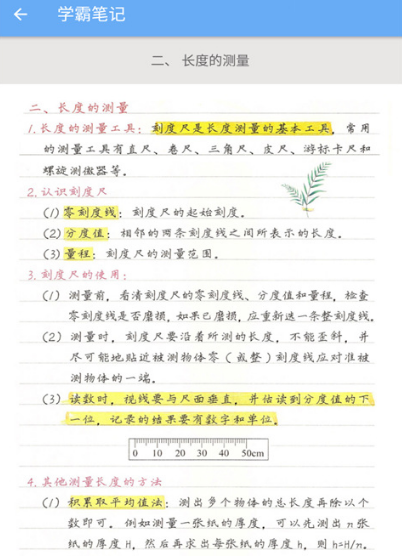 学霸笔记
二、 长度的测量
二、长度的测量
1.长度的测量工具：刻度尺是长度测量的基本工具，常用
的测量工具有直尺、卷尺、三角尺、皮尺、游标卡尺和
螺旋测微器等。
2.认识刻度尺
(1)零刻度线：刻度尺的起始刻度。
(2)分度值：相邻的两条刻度线之间所表示的长度。
(3)量程：刻度尺的测量范围。
3.刻度尺的使用：
(1) 测量前，看清刻度尺的零刻度线、分度值和量程，检查
零刻度线是否磨损，如果已磨损，应重新选一条整刻度线。
(2) 测量时，刻度尺要沿着所测的长度，不能歪斜，并
尽可能地贴近被测物体零（或整）刻度线应对准被
测物体的一端。
(3) 读数时，视线要与尺面垂直，并估读到分度值的下
一位，记录的结果要有数字和单位。
0 10 20 30 40 50cm
4.其他测量长度的方法
(1) 积累取平均值法：测出多个物体的总长度再除以个
数即可。例如测量一张纸的厚度，可以先测出n张
纸的厚度H，然后再求出每张纸的厚度h，则h=H/n。